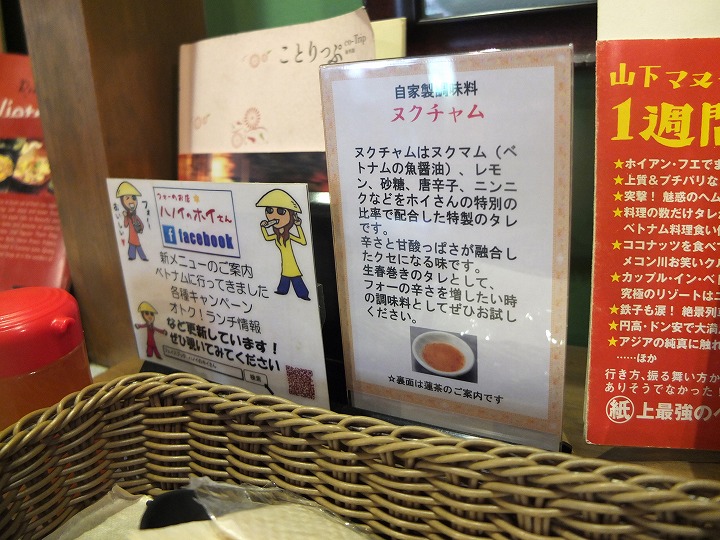 ことりっぷ co-Trip
自家製調味料
ヌクチャム
ヌクチャムはヌクマム（ベ
トナムの魚醤油）、レモ
ン、砂糖、唐辛子、ニンニ
クなどをホイさんの特別の
比率で配合した特製のタレ
です。
辛さと甘酸っぱさが融合し
たクセになる味です。
生春巻きのタレとして、
フォーの辛さを増したい時
の調味料としてぜひお試し
ください。
☆裏面は蓮茶のご案内です
フォーのお店
ハノイのホイさん
facebook
新メニューのご案内
ベトナムに行ってきました
各種キャンペーン
オトク！ランチ情報
など更新しています！
ぜひ覗いてみてください
検索
山下マヌ
1週間
★ホイアン・フエでま
★上質＆プチバリな
★突撃！ 魅惑のヘム
★料理の数だけタレ
ベトナム料理食い
★ココナッツを食べ
メコン川お笑いク
★カップル・イン・ベ
究極のリゾートはコ
★鉄子も涙！ 絶景列
★円高・ドン安で大満
★アジアの純真に触れ
……ほか
行き方、振る舞い方か
ありそうでなかった
紙 上最強の